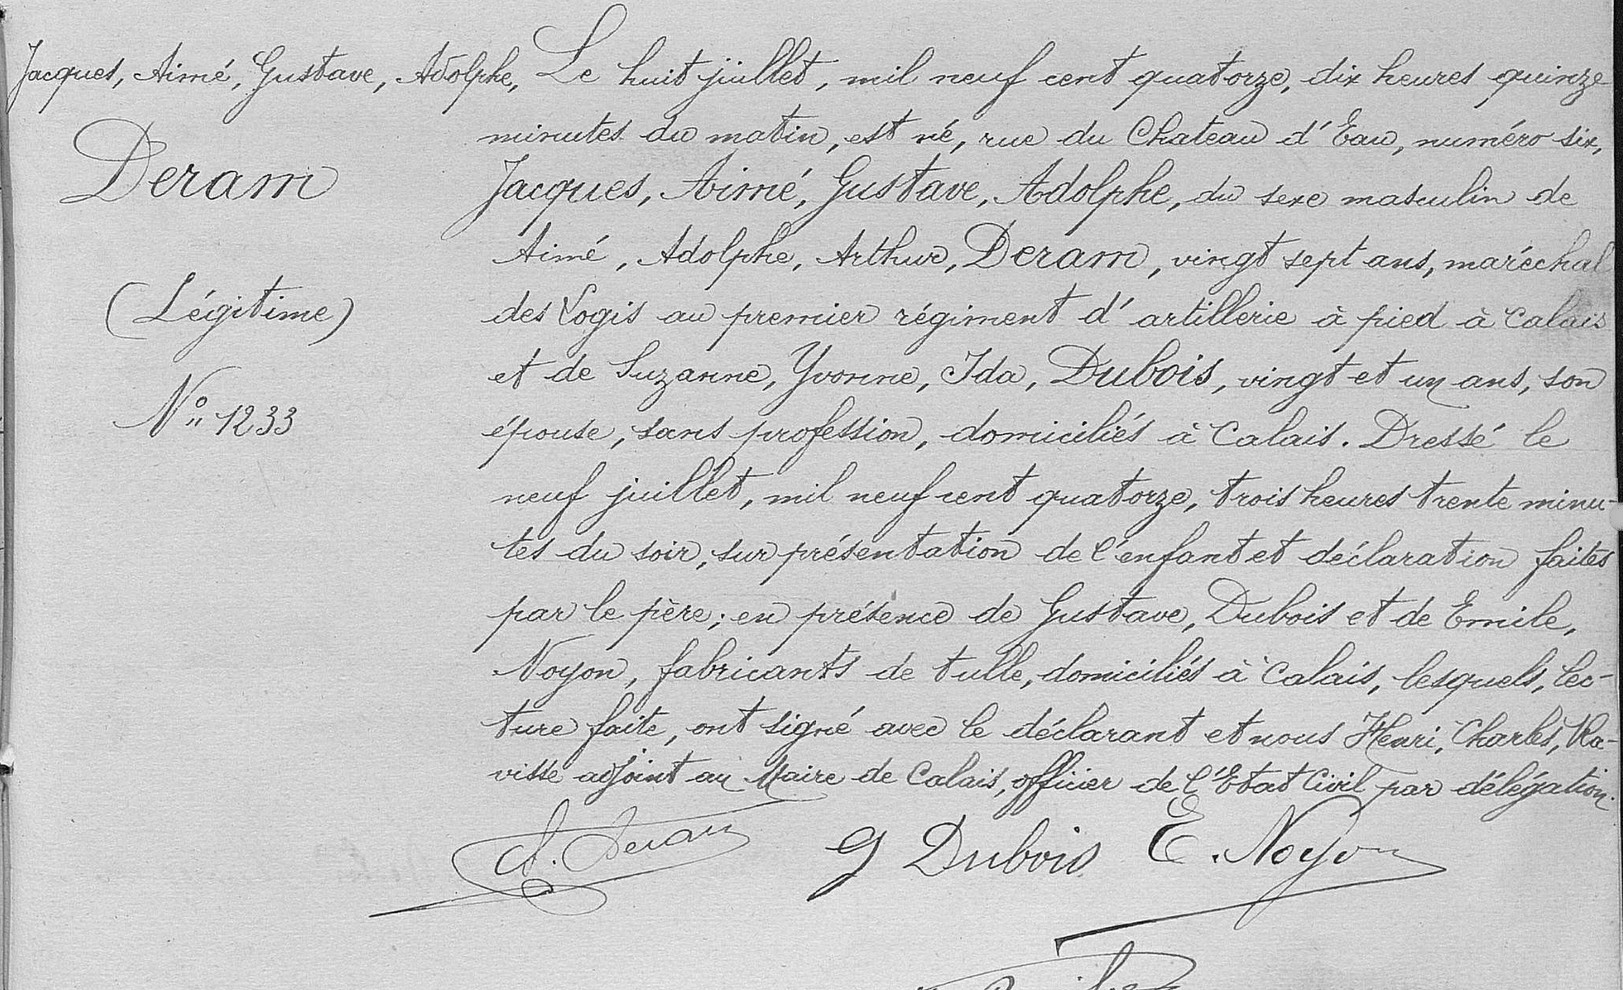 Jacques, Aimé, Gustave, Adolphe,
Deram
(Légitime)
N° 1233
Le huit juillet, mil neuf cent quatorze, dix heures quinze
minutes du matin, est né, rue du Chateau d'Eau, numéro six,
Jacques, Aimé, Gustave, Adolphe, du sexe masculin de
Aimé, Adolphe, Arthur, Deram, vingt sept ans, maréchal
des Logis au premier régiment d'artillerie à pied à Calais
et de Suzanne, Yvonne, Ida, Dubois, vingt et un ans, son
épouse, sans profession, domiciliés à Calais. Dressé le
neuf juillet, mil neuf cent quatorze, trois heures trente minu-
tes du soir, sur présentation de l'enfant et déclaration faites
par le père; en présence de Gustave, Dubois et de Emile,
Noyon, fabricants de tulle, domiciliés à Calais, lesquels, lec-
ture faite, ont signé avec le déclarant et nous Henri, Charles, Ra-
visse adjoint au Maire de Calais, officier de l'Etat Civil par délégation.
A. Deram G Dubois E. Noyon